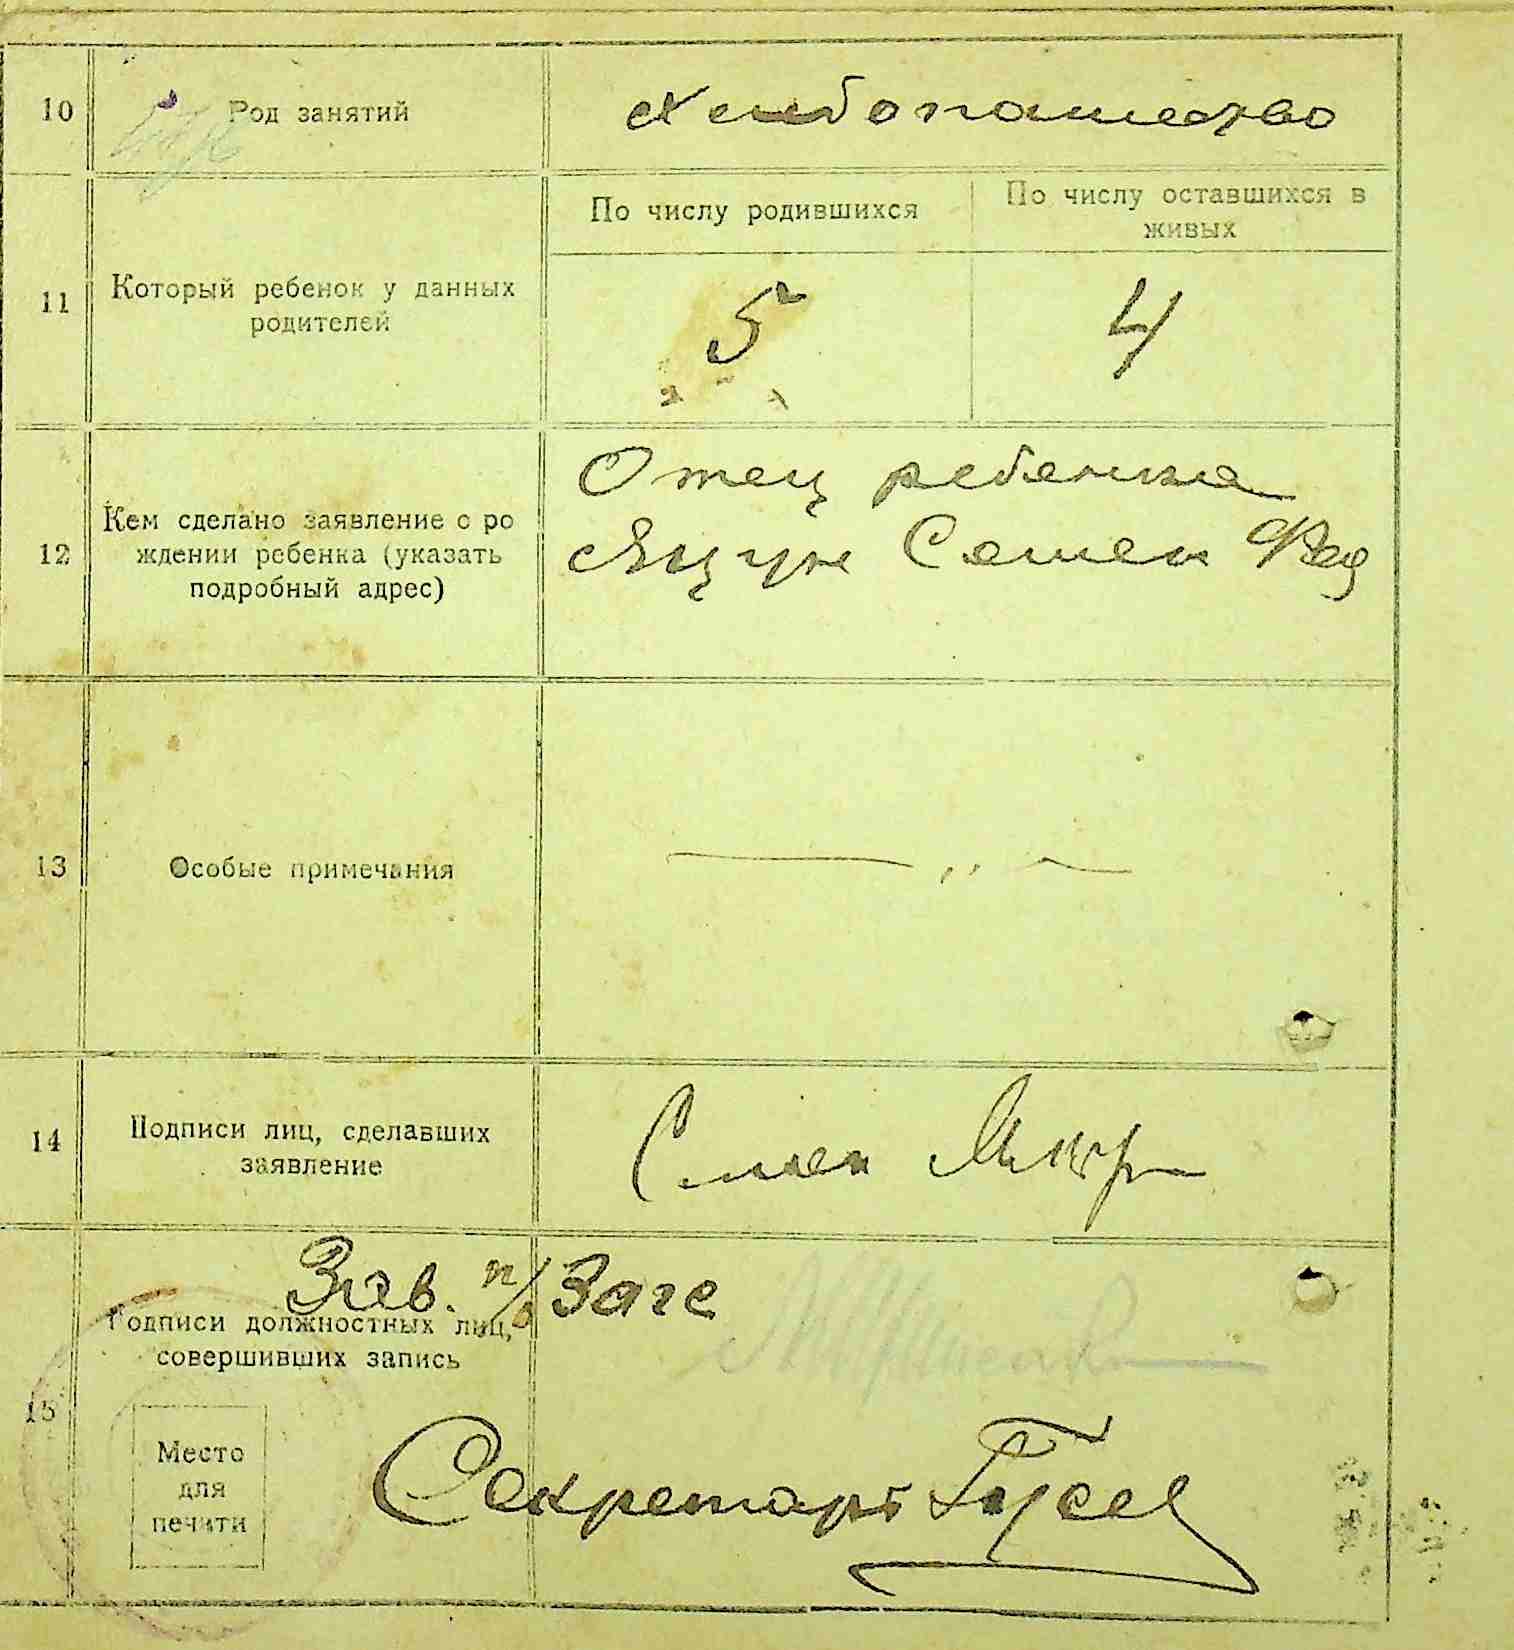 10 Род занятий Хлебопашество
По числу родившихся По числу оставшихся в
живых
11 Который ребенок у данных
родителей
5 4
12 Кем сделано заявление о ро
ждении ребенка (указать
подробный адрес)
Отец ребенка
Яцун Семен Фед
13 Особые примечания
14 Подписи лиц, сделавших
заявление
Семен Яцун
Зав. п/Заге
15 Подписи должностных лиц,
совершивших запись
Место
для
печати
Секретарь Гусев